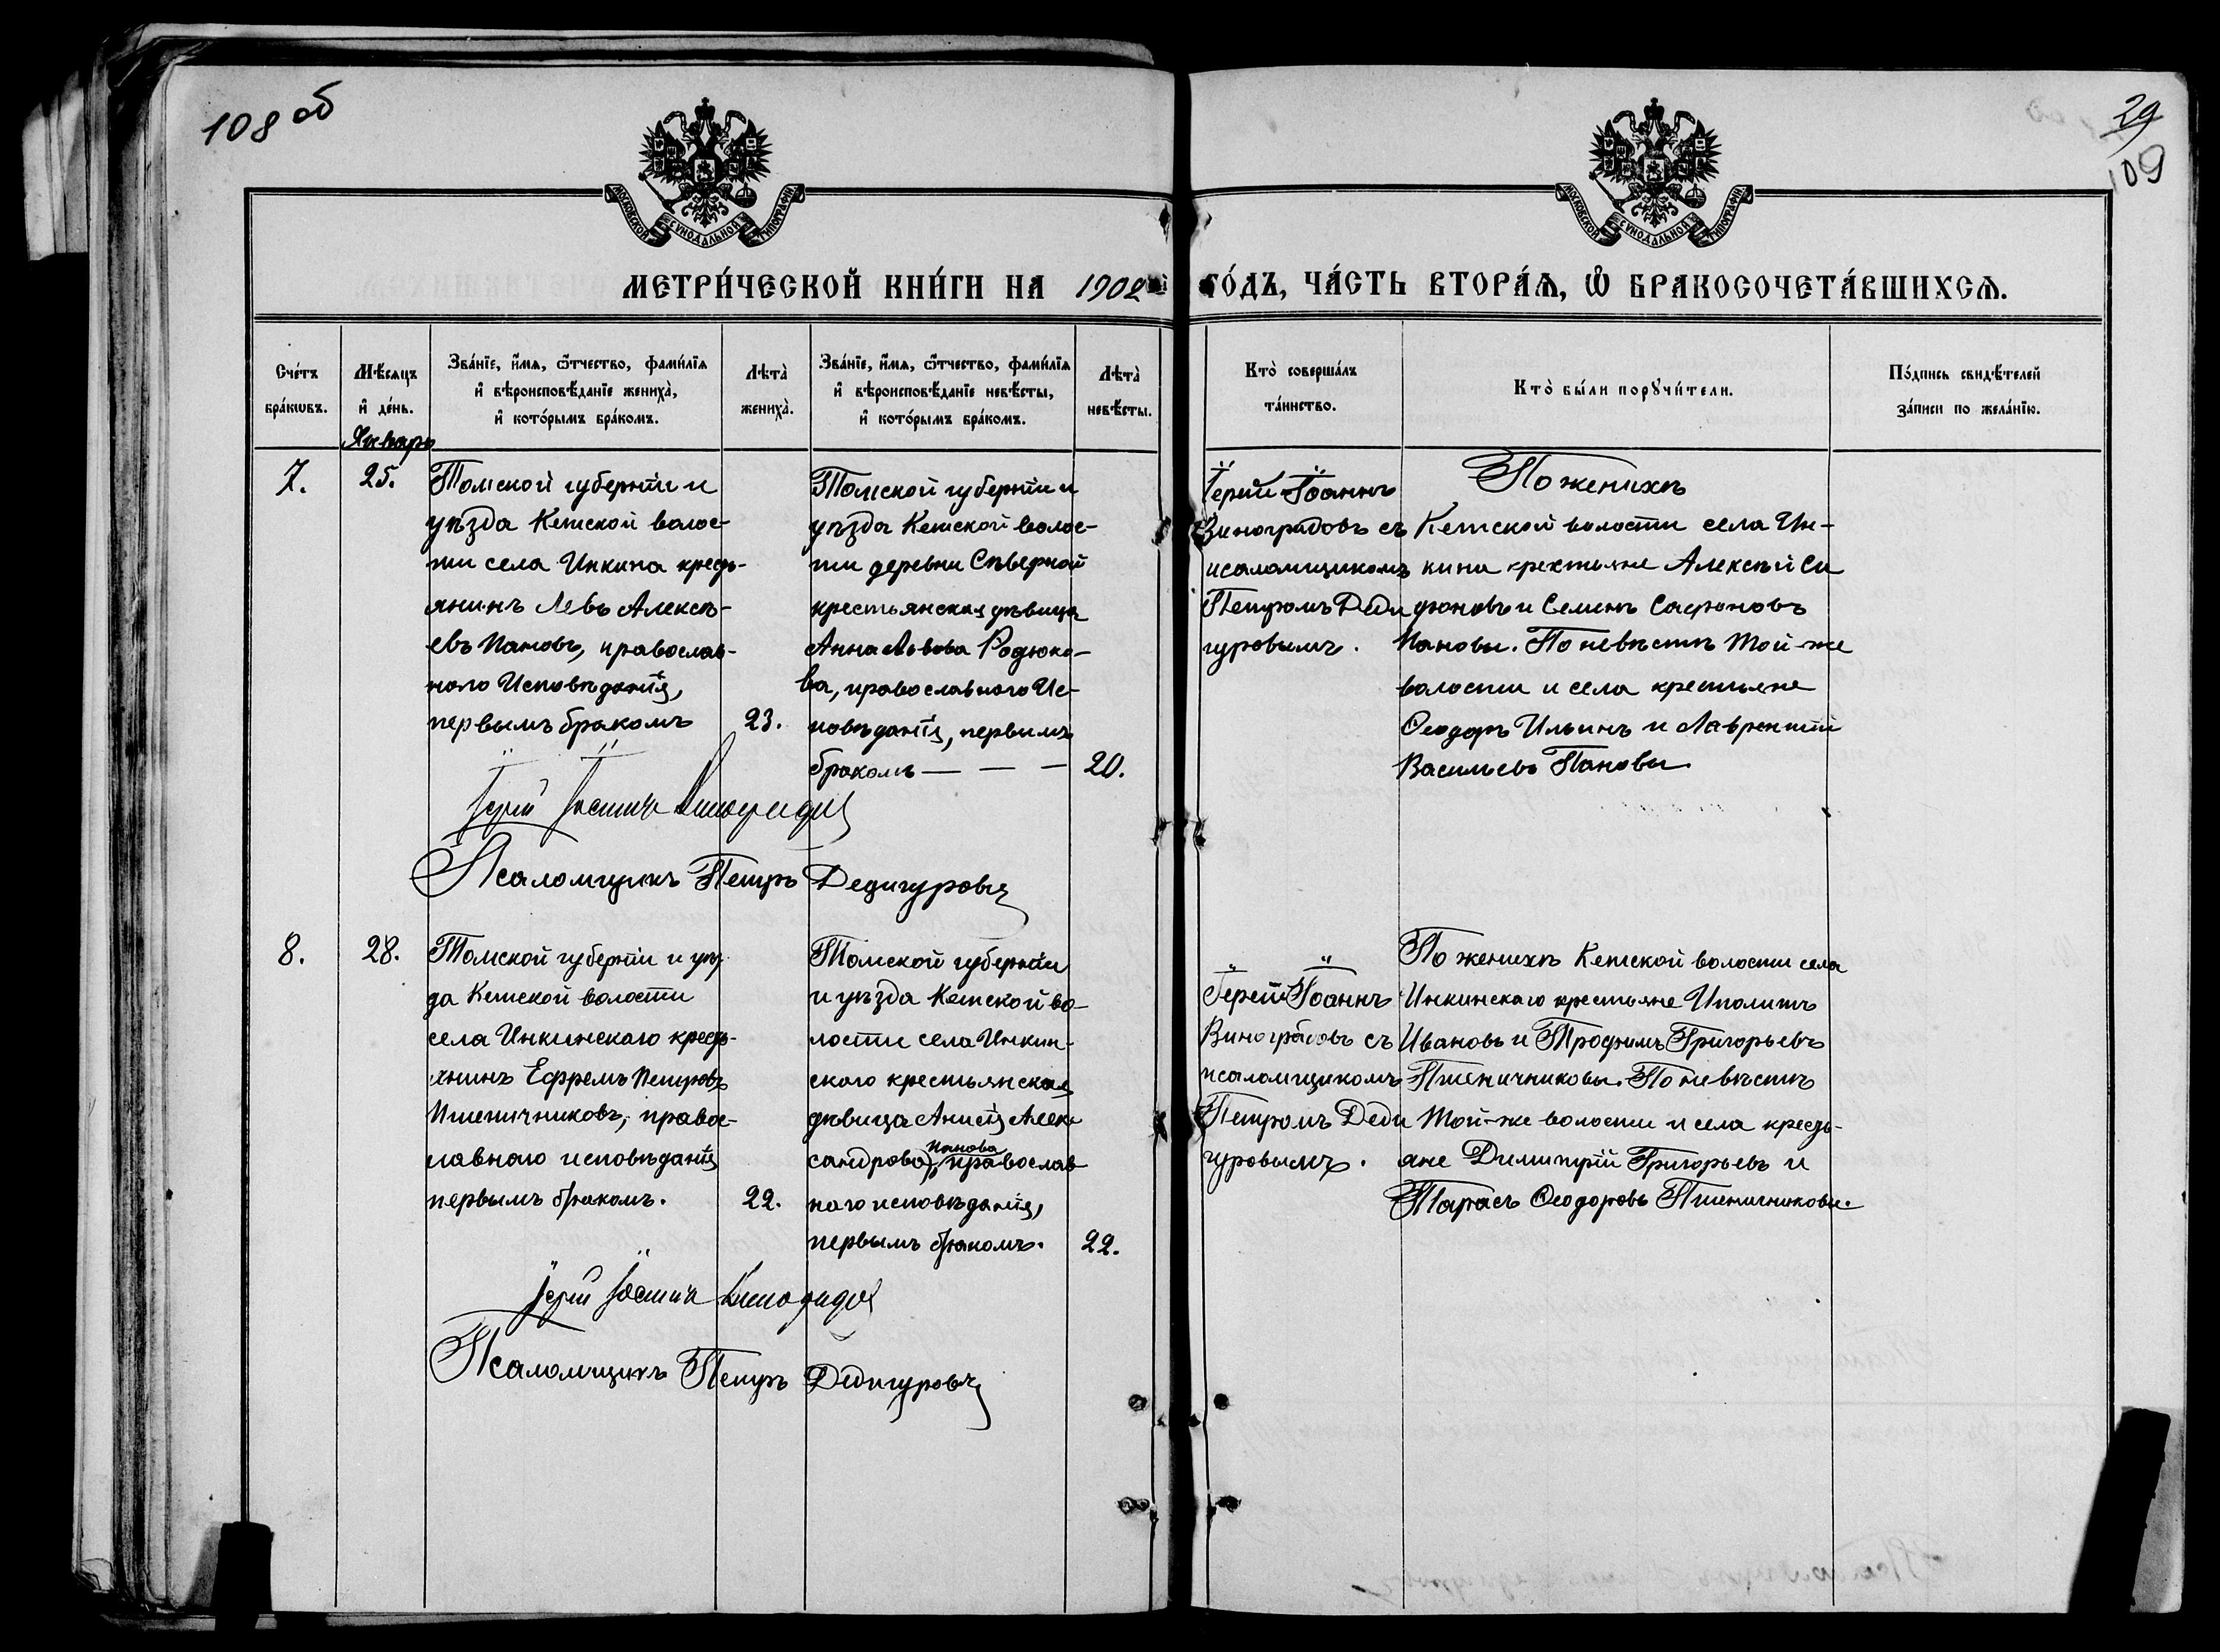 108 об
29
109
МОСКОВСКОЙ СУНОДАЛЬНОЙ ТИПОГРАФІИ
МОСКОВСКОЙ СУНОДАЛЬНОЙ ТИПОГРАФІИ
МЕТРИ́ЧЕСКОЙ КНИ́ГИ НА 1902 ГО́ДЪ, ЧА́СТЬ ВТОРА́Ѧ, Ѽ БРАКОСОЧЕТА́ВШИХСѦ.
Сче́тъ
бра́кѡвъ.
Мѣ́сѧцъ
и҆ де́нь.
Январь
Зва́нїе, и҆́мѧ, ѻ҆́тчество, фами́лїѧ
и҆ вѣроисповѣ́данїе жениха̀,
и҆ кото́рымъ бра́комъ.
Лѣта̀
жениха̀.
Зва́нїе, и҆́мѧ, ѻ҆́тчество, фами́лїѧ
и҆ вѣроисповѣ́данїе невѣ́сты,
и҆ кото́рымъ бра́комъ.
Лѣта̀
невѣ́сты.
Кто̀ соверша́лъ
та́инство.
Кто̀ бы́ли порꙋчи́тели.
По́дпись свидѣ́телей
за́писи по жела́нїю.
7.
25.
Томской губерніи и
уѣзда Кетской волос-
ти села Инкина кресть-
янинъ Левъ Алексѣ-
евъ Пановъ, православ-
наго Исповѣданія,
первымъ бракомъ
23.
Томской губерніи и
уѣзда Кетской волос-
ти деревни Сѣверной
крестьянская дѣвица
Анна Львова Родюко-
ва, православнаго Ис-
повѣданія, первымъ
бракомъ — — —
20.
Іерей Іоаннъ
Виноградовъ съ
псаломщикомъ
Петромъ Деди
гуровымъ.
По женихѣ
Кетской волости села Ин-
кина крестьяне Алексѣй Си
фоновъ и Семенъ Сафоновъ
Пановы. По невѣстѣ Той-же
волости и села крестьяне
Ѳеодоръ Ильинъ и Лаврентій
Васильевъ Пановы.
Іерей Іоаннъ Виноградовъ
Псаломщикъ Петръ Дедигуровъ
8.
28.
Томской губерніи и уѣз
да Кетской волости
села Инкинскаго кресть-
янинъ Ефремъ Петровъ
Пшеничниковъ, правос-
лавнаго исповѣданія
первымъ бракомъ.
22.
Томской губерніи
и уѣзда Кетской во-
лости села Инкин-
скаго крестьянская
дѣвица Анисія Алек
сандрова Панова, православ
наго исповѣданія,
первымъ бракомъ.
22.
Іерей Іоаннъ
Виноградовъ съ
псаломщикомъ
Петромъ Деди
гуровымъ.
По женихѣ Кетской волости села
Инкинскаго крестьяне Иполитъ
Ивановъ и Трофимъ Григорьевъ
Пшеничниковы. По невѣстѣ
Той-же волости и села кресть-
яне Димитрій Григорьевъ и
Тарасъ Ѳеодоровъ Пшеничниковы.
Іерей Іоаннъ Виноградовъ
Псаломщикъ Петръ Дедигуровъ